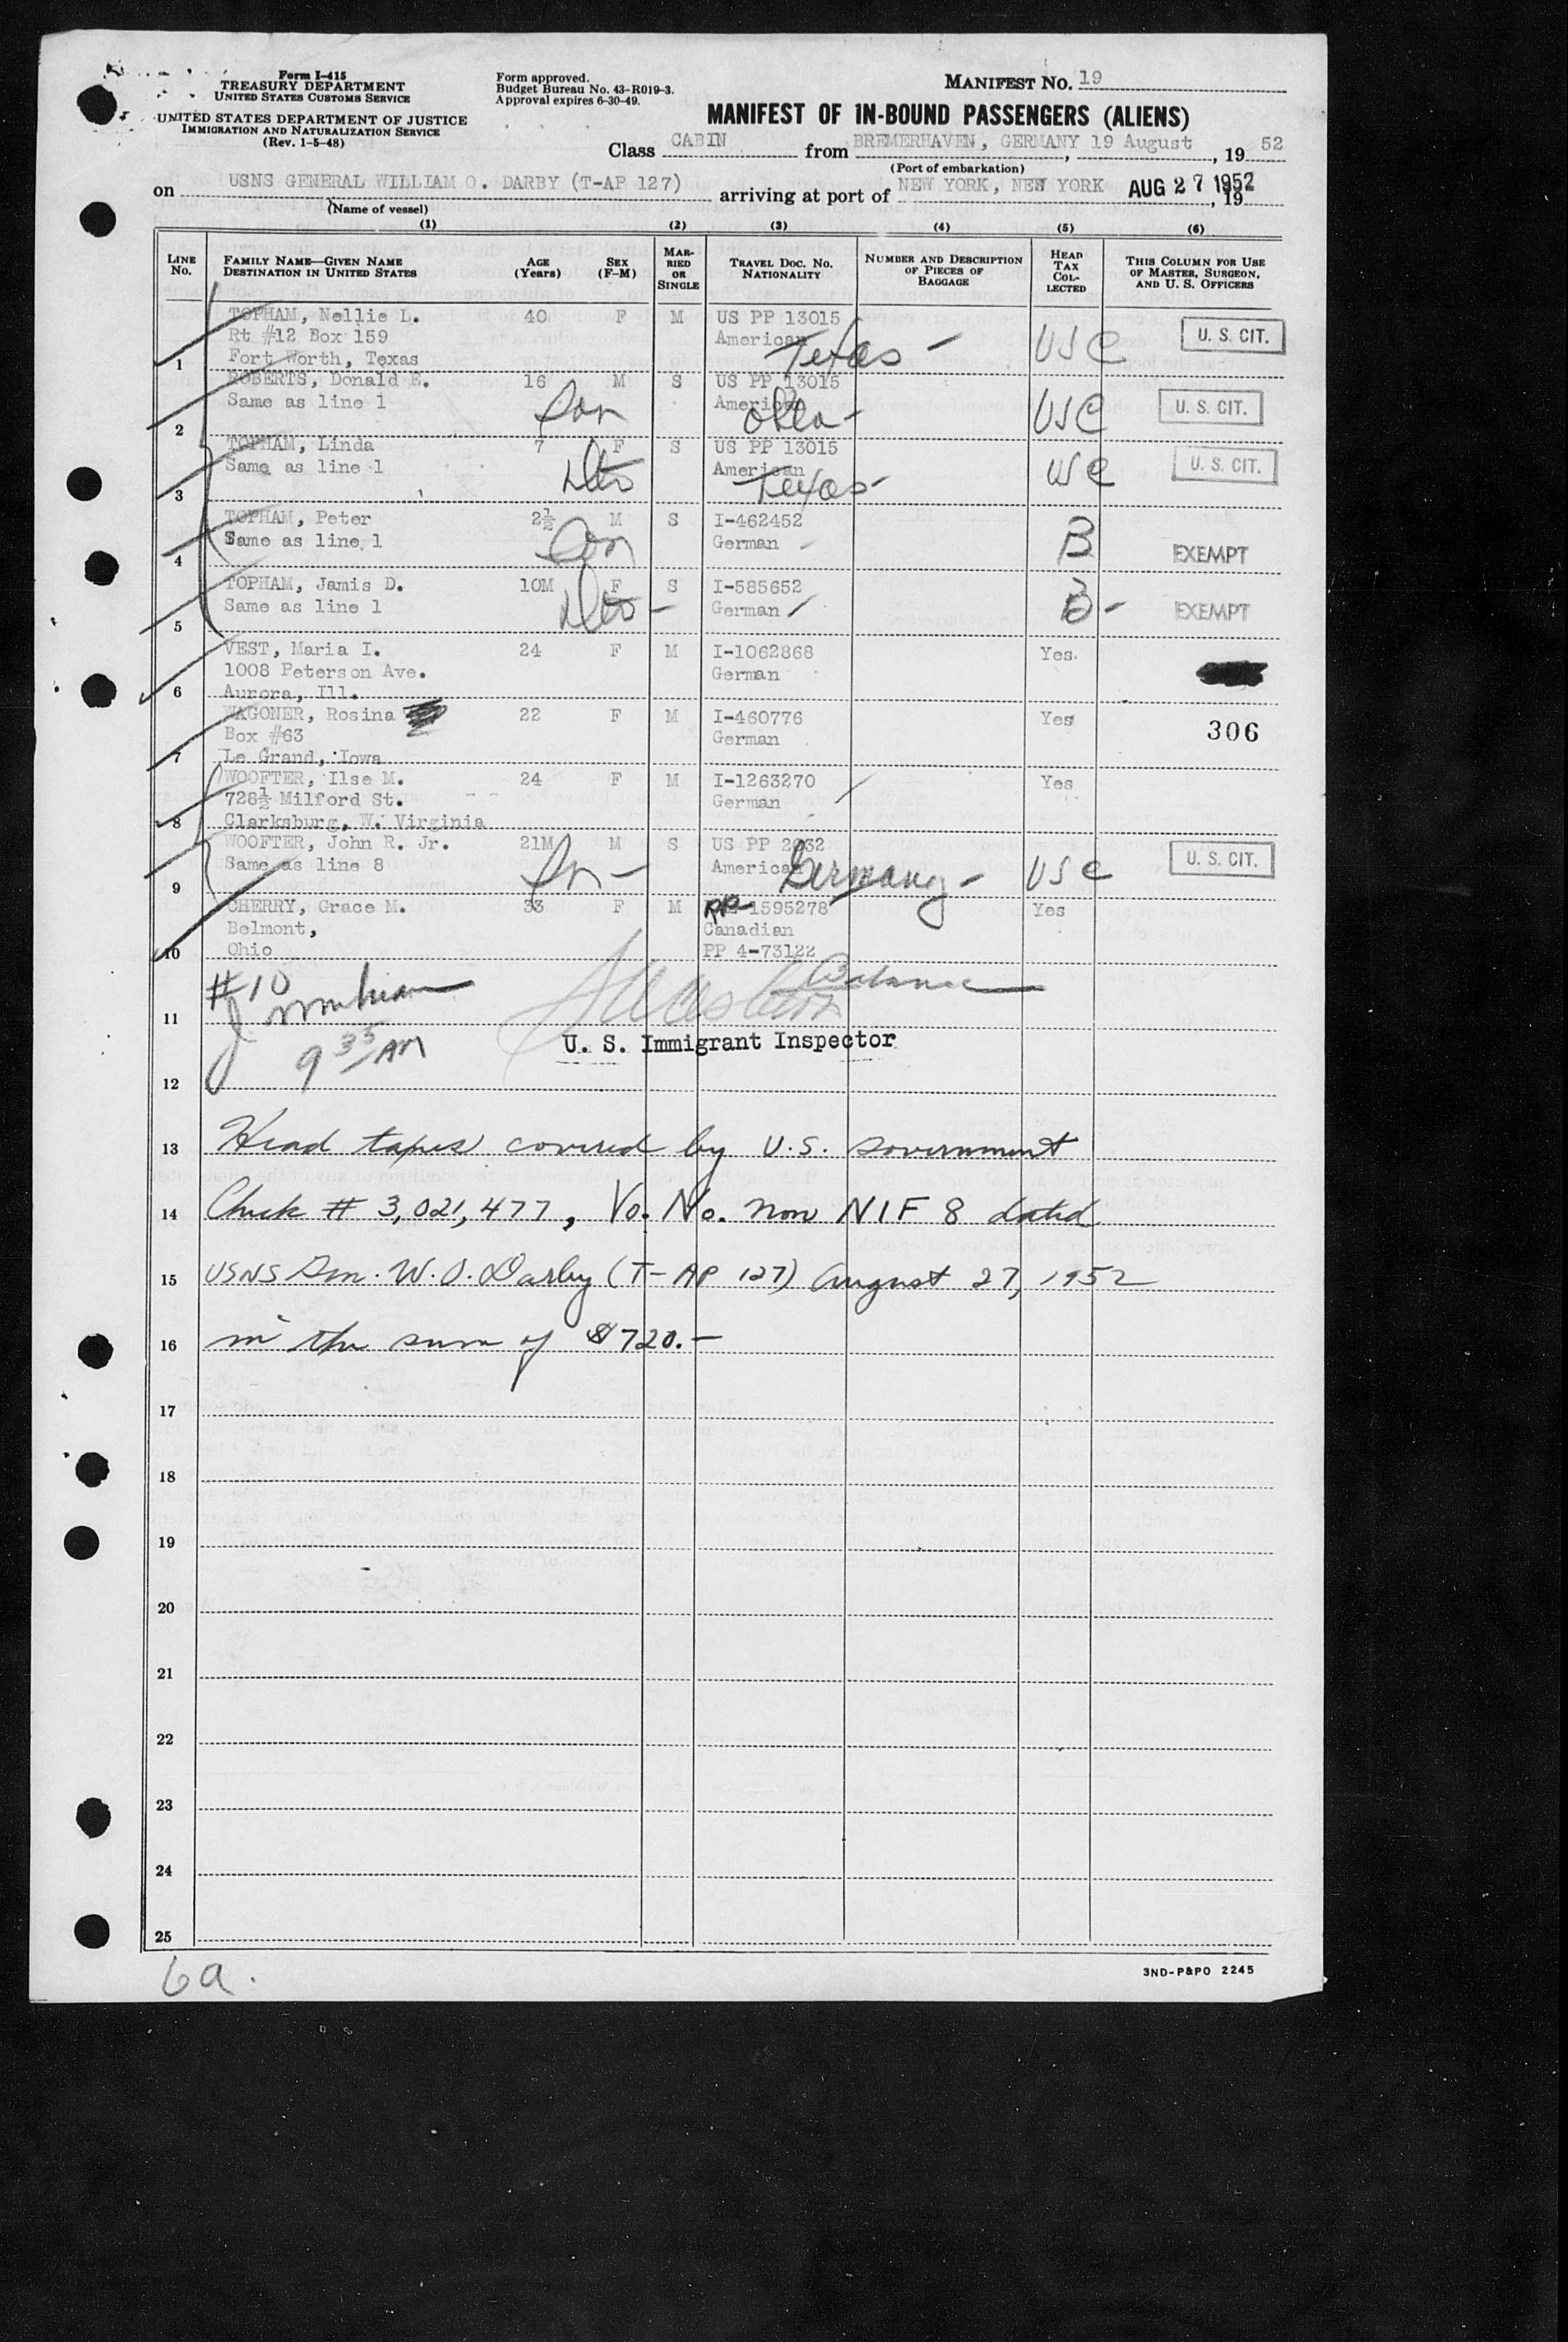 Form I-415
TREASURY DEPARTMENT
UNITED STATES CUSTOMS SERVICE
UNITED STATES DEPARTMENT OF JUSTICE
IMMIGRATION AND NATURALIZATION SERVICE
(Rev. 1-5-48)
Form approved.
Budget Bureau No. 43-R019-3.
Approval expires 6-30-49.
MANIFEST NO. 19
MANIFEST OF IN-BOUND PASSENGERS (ALIENS)
Class CABIN from BREMERHAVEN, GERMANY 19 August, 19 52
(Port of embarkation)
on USNS GENERAL WILLIAM O. DARBY (T-AP 127) arriving at port of NEW YORK, NEW YORK AUG 27 1952, 19
(Name of vessel)
(1) (2) (3) (4) (5) (6)
LINE No. FAMILY NAME—GIVEN NAME DESTINATION IN UNITED STATES AGE (Years) SEX (F-M) MARRIED OR SINGLE TRAVEL DOC. NO. NATIONALITY NUMBER AND DESCRIPTION OF PIECES OF BAGGAGE HEAD TAX COLLECTED THIS COLUMN FOR USE OF MASTER, SURGEON, AND U. S. OFFICERS
TOPHAM, Nellie L. 40 F M US PP 13015
Rt #12 Box 159 American Texas - USC U. S. CIT.
1 Fort Worth, Texas
ROBERTS, Donald E. 16 M S US PP 13015
Same as line 1 Son American Okla - USC U. S. CIT.
2
TOPHAM, Linda 7 F S US PP 13015
Same as line 1 Dtr American Texas - USC U. S. CIT.
3
TOPHAM, Peter 2½ M S I-462452
Same as line 1 Son German B EXEMPT
4
TOPHAM, Jamis D. 10M F S I-585652
Same as line 1 Dtr - German B - EXEMPT
5
VEST, Maria I. 24 F M I-1062868 Yes
1008 Peterson Ave. German
6 Aurora, Ill.
WAGONER, Rosina 22 F M I-460776 Yes 306
Box #63 German
7 Le Grand, Iowa
WOOFTER, Ilse M. 24 F M I-1263270 Yes
728½ Milford St. German
8 Clarksburg, W. Virginia
WOOFTER, John R. Jr. 21M M S US PP 2032
Same as line 8 Son - American Germany - USC U. S. CIT.
9
CHERRY, Grace M. 33 F M PP 1595278 Yes
Belmont, Canadian
10 Ohio PP 4-73122
#10
11
9 35 AM U. S. Immigrant Inspector
12
13 Head taxes covered by U.S. Government
14 Check # 3,021,477, Vo. No. Non NIF 8 dated
15 USNS Gen. W. O. Darby (T-AP 127) August 27, 1952
16 in the sum of $720.—
17
18
19
20
21
22
23
24
25
6a.
3ND-P&PO 2245